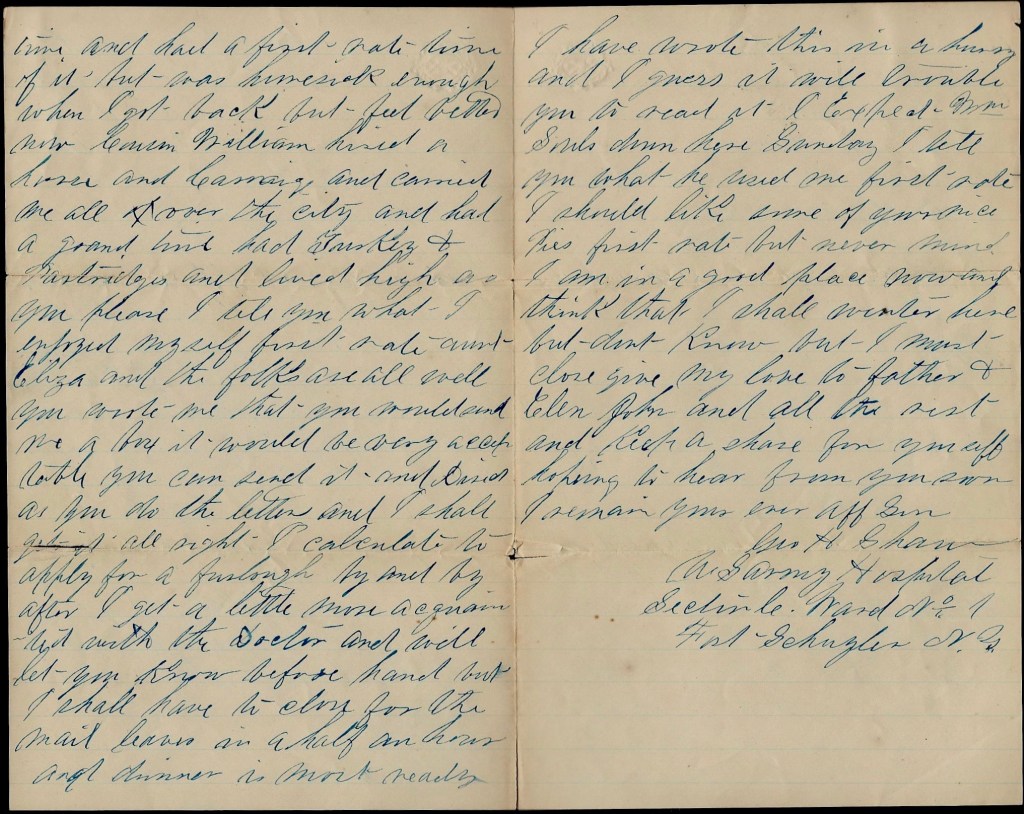 time and had a first-rate time
of it but was homesick enough
when I got back but feel better
now Cousin William hired a
horse and Carraig and carried
me all over the city and had
a grand time had Turkey &
Partridges and lived high as
you please I tell you what I
enjoyed myself first rate aunt
Eliza and the folks are all well
you wrote me that you would send
me a box it would be very accep
table you can send it and Direct
as you do the letters and I shall
get it all right I calculate to
apply for a furlough by and by
after I get a little more acquain
ted with the Doctor and will
let you Know before hand but
I shall have to close for the
mail leaves in a half an hour
and dinner is most ready
I have wrote this in a hurry
and I guess it will trouble
you to read it I Expect Wm
Souls down here Sunday I tell
you what he used me first rate
I should like some of your nice
Pies first rate but never mind
I am in a good place now and
think that I shall winter here
but dont Know but I must
close give my love to father &
Elen John and all the rest
and Keep a share for yourself
hoping to hear from you soon
I remain your ever aff Son
Geo H Shaw
U.S army Hospital
Section C. Ward No 1
Fort Schuyler N.Y.